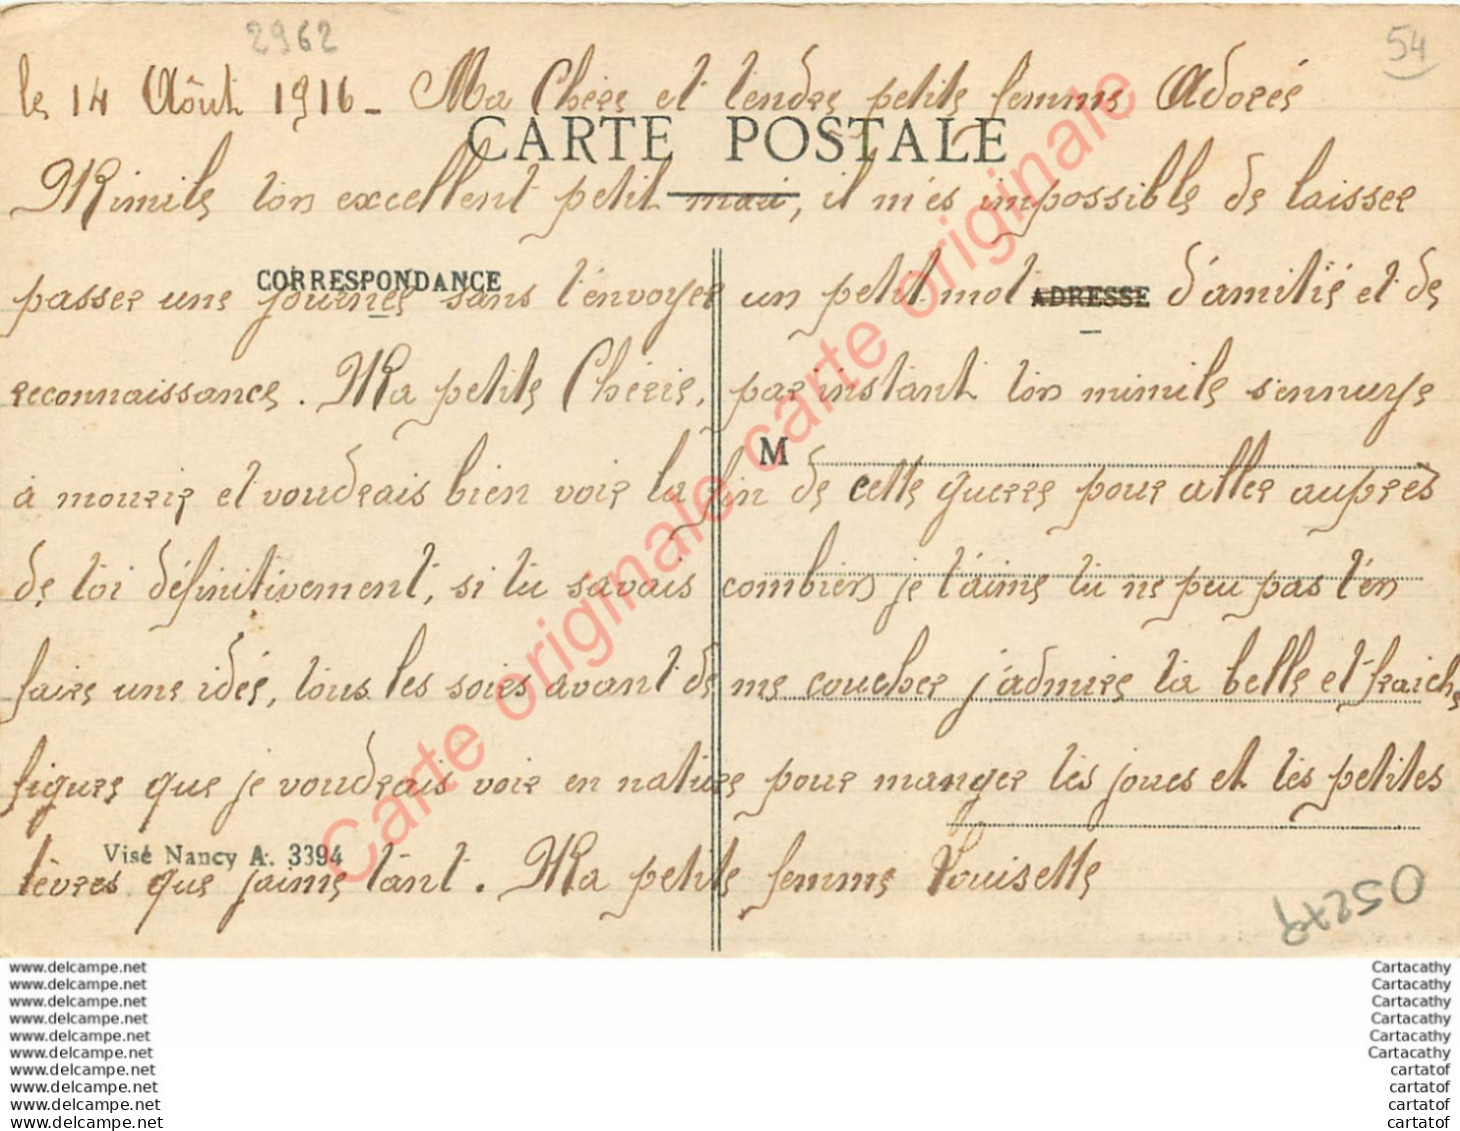 2962
54
le 14 Aôut 1916 - Ma Chère et tendre petite femme Adoré
CARTE POSTALE
Mimile ton excellent petit mari, il m'es impossible de laisser
CORRESPONDANCE
ADRESSE
passer une journée sans t'envoyer un petit mot d'amitié et de
reconnaissance. Ma petite Chérie, par instant ton mimile s'ennuye
M
à mourir et voudrais bien voir la fin de cette guerre pour aller auprès
de toi définitivement, si tu savais combien je t'aime tu ne peu pas t'en
faire une idée, tous les soirs avant de me coucher j'admire ta belle et fraiche
figure que je voudrais voir en nature pour manger tes joues et tes petites
Visé Nancy A. 3394
lèvres que j'aime tant. Ma petite femme Louisette
05279
Carte originale carte originale carte originale
www.delcampe.net
www.delcampe.net
www.delcampe.net
www.delcampe.net
www.delcampe.net
www.delcampe.net
www.delcampe.net
www.delcampe.net
www.delcampe.net
www.delcampe.net
Cartacathy
Cartacathy
Cartacathy
Cartacathy
Cartacathy
Cartacathy
cartatof
cartatof
cartatof
cartatof